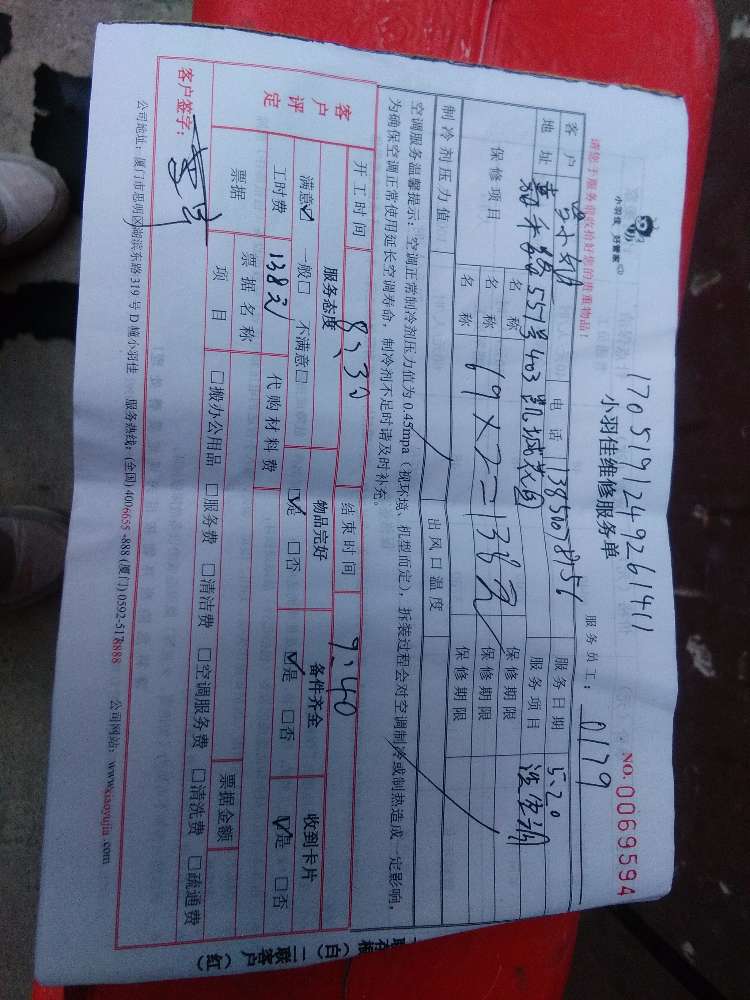 小羽佳 好管家
1705191249261411
小羽佳维修服务单
NO.0069594
请您于服务前收拾好您的贵重物品!
服务员工: 0179
客户 电话 13850078956 服务日期 5.20
地址 嘉禾路551号403凯城花园 服务项目 洗空调
保修项目 名称 保修期限
名称 69×2=138元 保修期限
制冷剂压力值 出风口温度
空调服务温馨提示:空调正常制冷剂压力值为0.45mpa(视环境、机型而定),拆装过程会对空调制冷或制热造成一定影响,
为确保空调正常使用延长空调寿命,制冷剂不足时请及时补充。
开工时间 8:30 结束时间 9:40
客户评定 服务态度 物品完好 备件齐全 收到卡片
满意☑ 一般□ 不满意□ ☑是 □否 ☑是 □否 ☑是 □否
工时费 138元 代购材料费
票据 票据名称 票据金额
项目 □搬办公用品 □服务费 □清洁费 □空调服务费 □清洗费 □疏通费
客户签字:
公司地址:厦门市思明区湖滨东路319号D幢小羽佳 服务热线:(全国)4006655-888(厦门)0592-5178888 公司网站:www.xiaoyujia.com
(白) 二联客户(红)